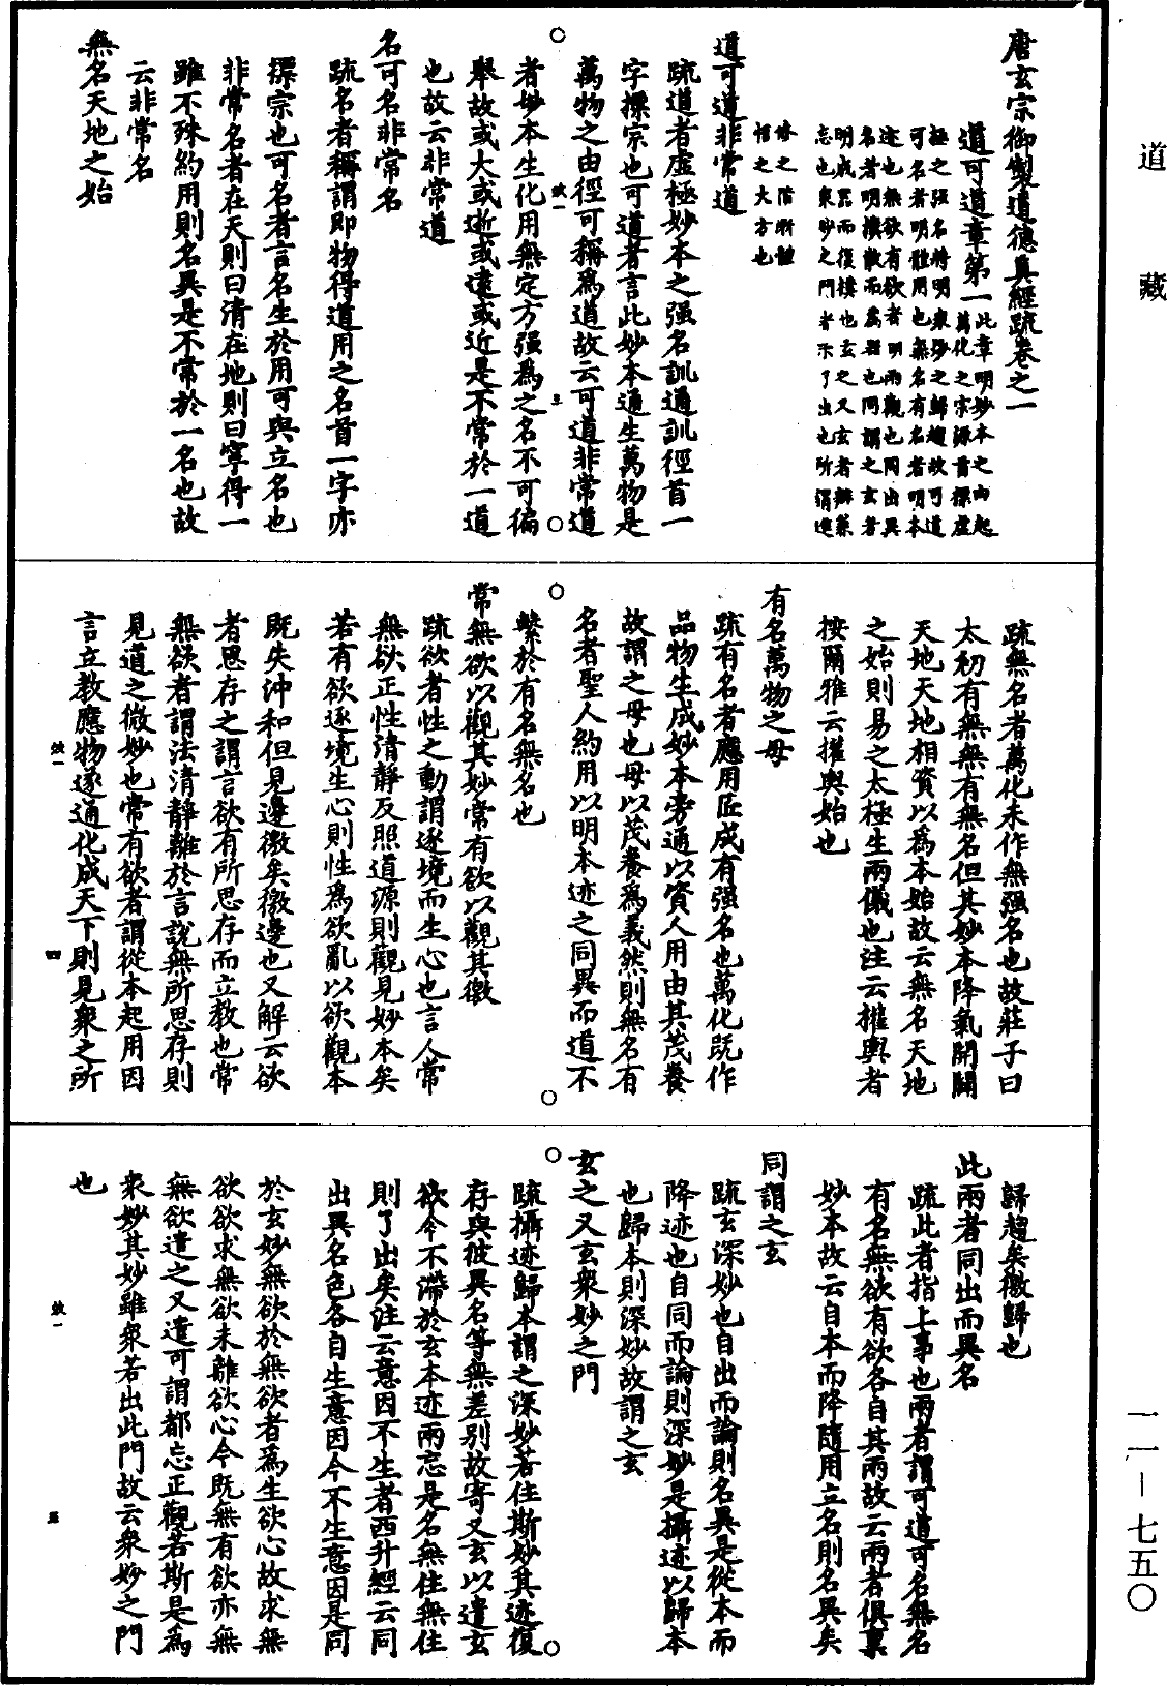 道藏
一一—七五〇
唐玄宗御製道德真經疏卷之一
道可道章第一
此章明妙本之由起
萬化之宗源首摽虛
極之强名將明衆妙之歸趣故可道
可名者明體用也無名有名者明本
迹也無欲有欲者明兩觀也同出異
名者明樸散而爲器也同謂之玄者
明成器而復樸也玄之又玄者辯兼
忘也衆妙之門者示了出也所謂進
修之階漸體
悟之大方也
道可道非常道
疏道者虛極妙本之强名訓通訓徑首一
字摽宗也可道者言此妙本通生萬物是
萬物之由徑可稱爲道故云可道非常道
者妙本生化用無定方强爲之名不可徧
舉故或大或逝或遠或近是不常於一道
也故云非常道
名可名非常名
疏名者稱謂即物得道用之名首一字亦
摽宗也可名者言名生於用可與立名也
非常名者在天則曰清在地則曰寧得一
雖不殊約用則名異是不常於一名也故
云非常名
無名天地之始
疏無名者萬化未作無强名也故莊子曰
太初有無無有無名但其妙本降氣開闢
天地天地相資以爲本始故云無名天地
之始則易之太極生兩儀也注云權輿者
按爾雅云權輿始也
有名萬物之母
疏有名者應用匠成有强名也萬化旣作
品物生成妙本旁通以資人用由其茂養
故謂之母也母以茂養爲義然則無名有
名者聖人約用以明本迹之同異而道不
繫於有名無名也
常無欲以觀其妙常有欲以觀其徼
疏欲者性之動謂逐境而生心也言人常
無欲正性清靜反照道源則觀見妙本矣
若有欲逐境生心則性爲欲亂以欲觀本
旣失沖和但見邊徼矣徼邊也又解云欲
者思存之謂言欲有所思存而立教也常
無欲者謂法清靜離於言說無所思存則
見道之微妙也常有欲者謂從本起用因
言立教應物遂通化成天下則見衆之所
歸趨矣徼歸也
此兩者同出而異名
疏此者指上事也兩者謂可道可名無名
有名無欲有欲各自其兩故云兩者俱稟
妙本故云自本而降隨用立名則名異矣
同謂之玄
疏玄深妙也自出而論則名異是從本而
降迹也自同而論則深妙是攝迹以歸本
也歸本則深妙故謂之玄
玄之又玄衆妙之門
疏攝迹歸本謂之深妙若住斯妙其迹復
存與彼異名等無差別故寄又玄以遣玄
欲令不滯於玄本迹兩忘是名無住無住
則了出矣注云意因不生者西升經云同
出異名色各自生意因今不生意因是同
於玄妙無欲於無欲者爲生欲心故求無
欲欲求無欲未離欲心今旣無有欲亦無
無欲遣之又遣可謂都忘正觀若斯是爲
衆妙其妙雖衆若出此門故云衆妙之門
也